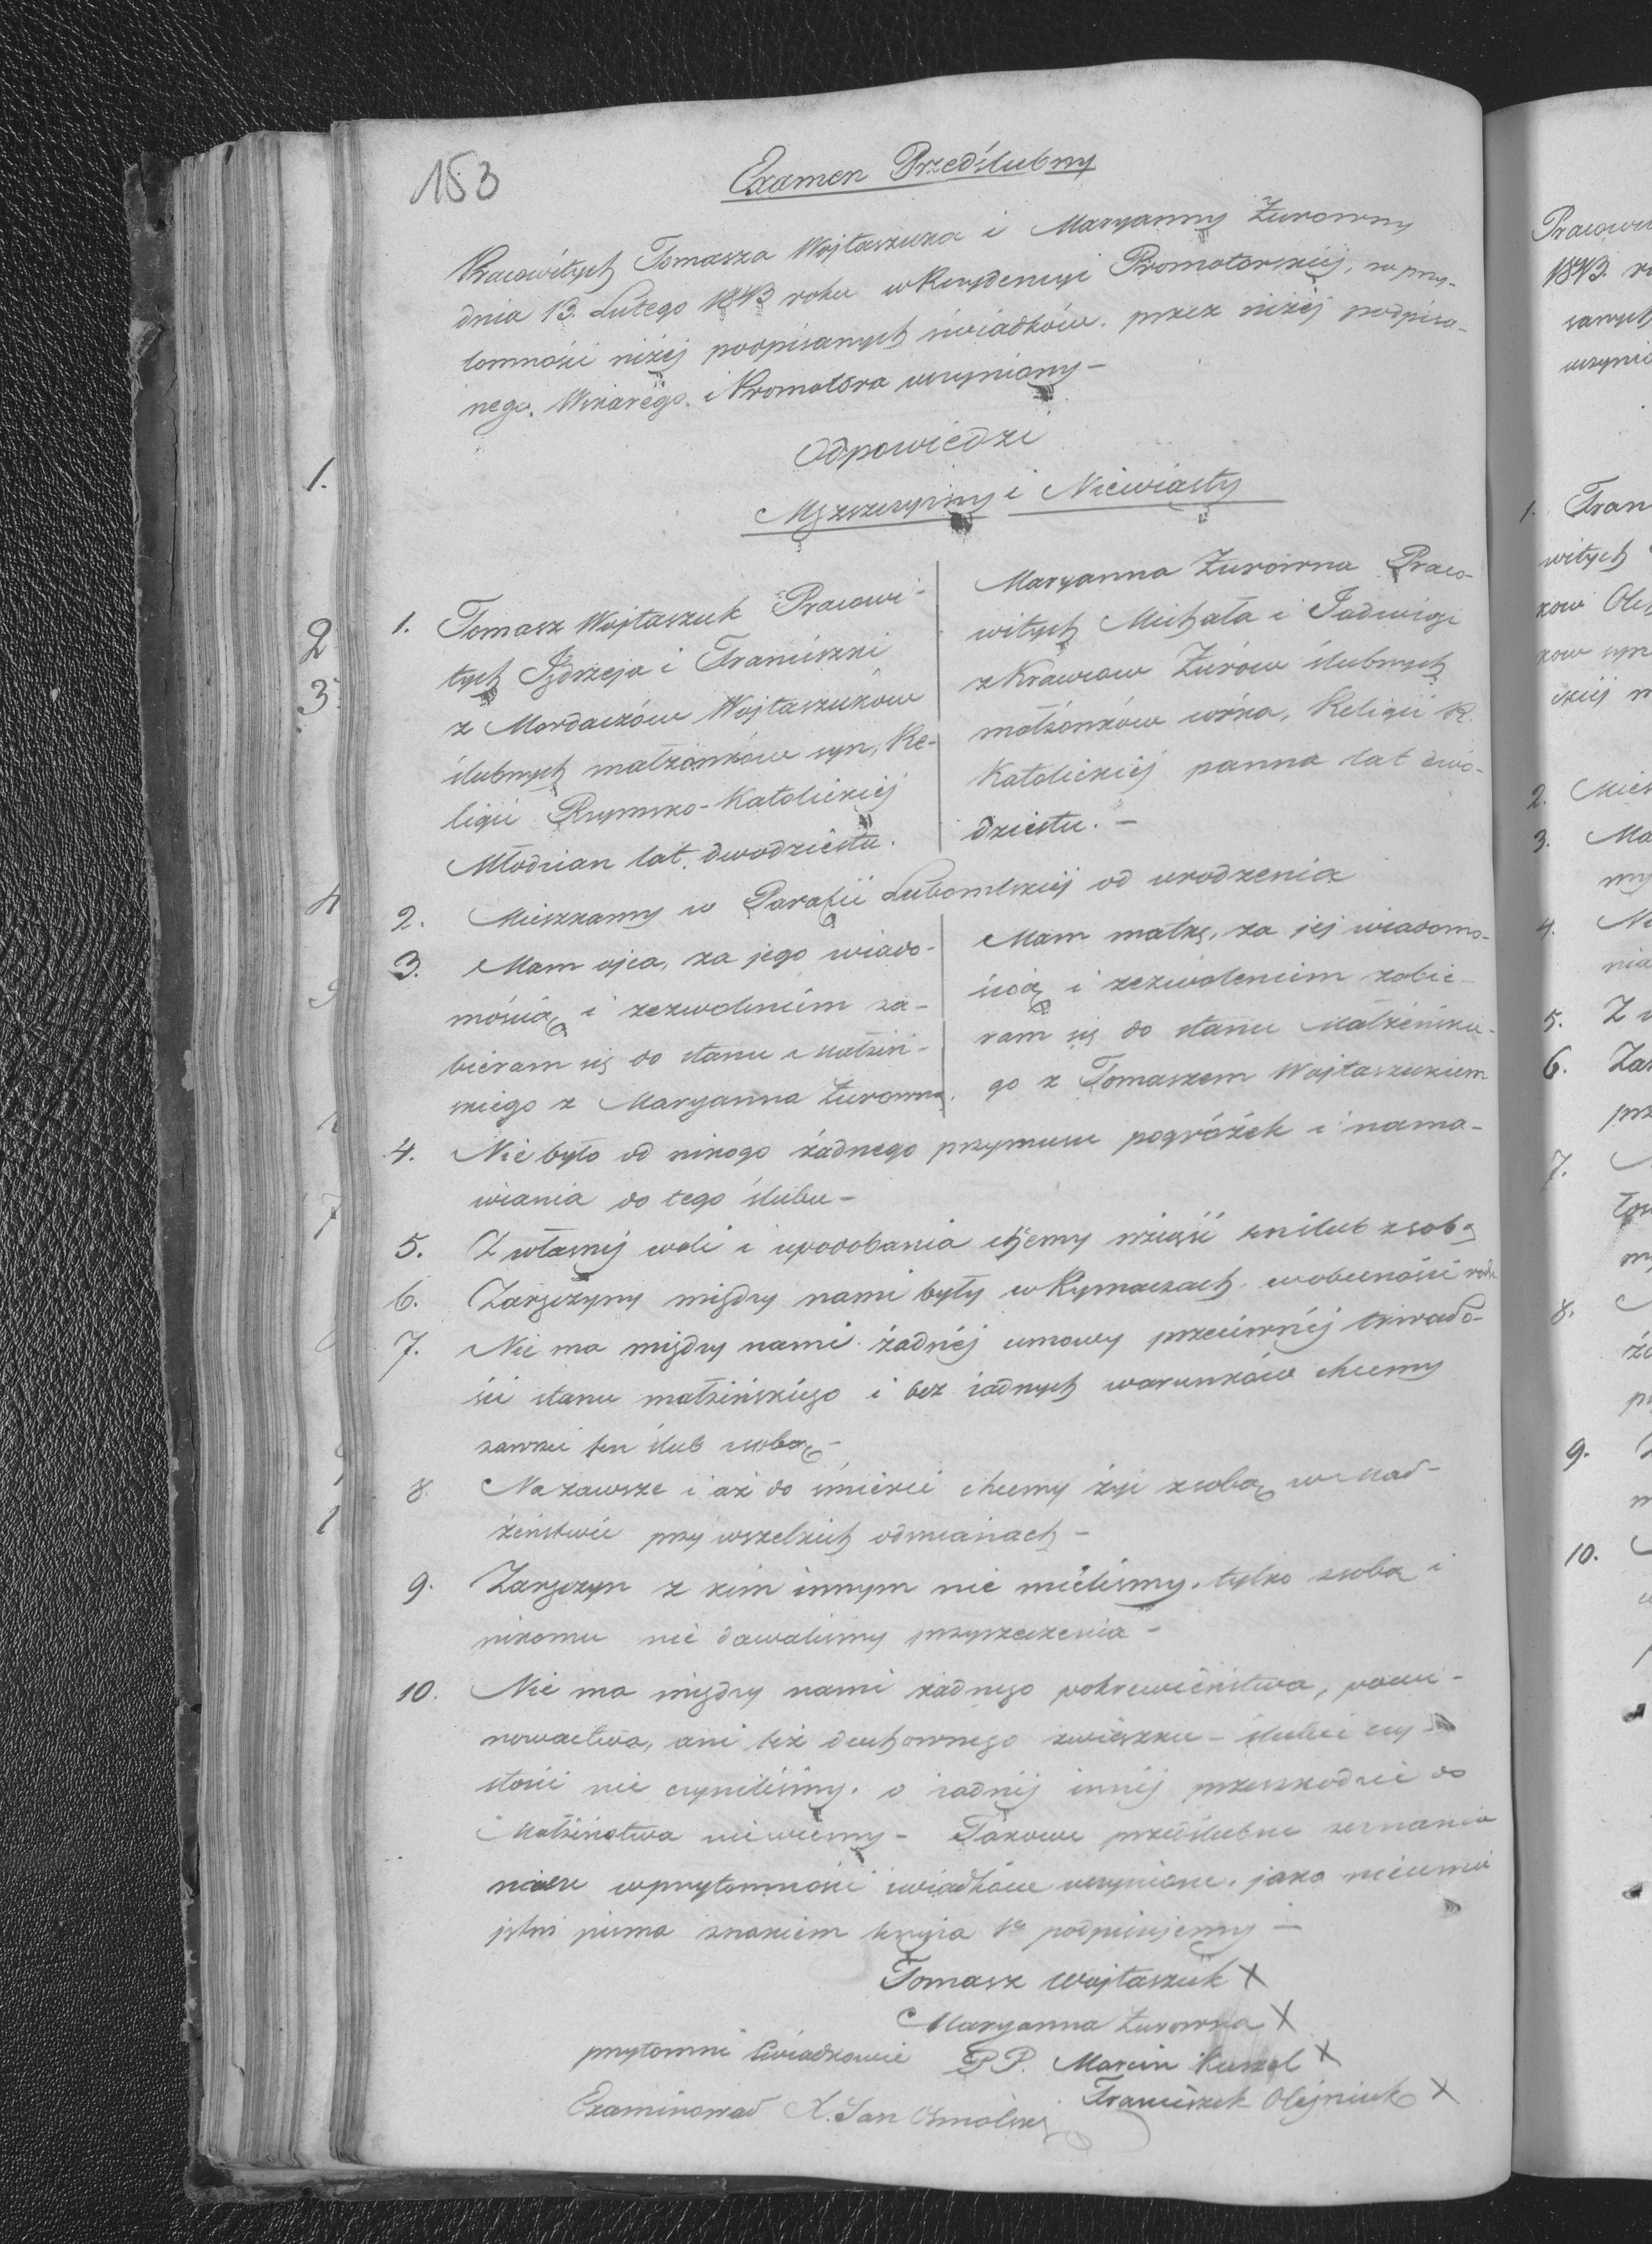 153
Examen Przedślubny
Pracowitych Tomasza Wojtaszuka i Maryanny Żurowny
dnia 13. Lutego 1843 roku w Rezydencyi Promotorskiéj, w przy-
tomności niżéj podpisanych świadków. przez niżéj podpisa-
nego. Wikarego. i Promotora uczyniony -
Odpowiedzi
Męzszczyzny i Niewiasty
1. Tomasz Wojtaszuk Pracowi-
tych Jędrzeja i Franciszki
z Mordaczów Wojtaszuków
ślubnych małżonków syn, Re-
ligii Rzymsko-Katolickiéj
Młodzian lat dwodziestu.
Maryanna Żurowna Praco-
witych Michała i Jadwigi
z Krawców Żurów ślubnych
małżonków córka, Religii R.
Katolickiéj panna lat dwo-
dziestu. -
2. Mieszkamy w Parafii Lubomlskiéj od urodzenia
3. Mam ojca, za jego wiado-
mością i zezwoleniem za-
bieram się do stanu Małżeń-
skiego z Maryanna Żurowną.
Mam matkę, za jej wiadomo-
ścią i zezwoleniem zabie-
ram się do stanu Małżeńskie-
go z Tomaszem Wojtaszukiem
4. Nie było od nikogo żadnego przymusu pogróżek i nama-
wiania do tego ślubu -
5. Z własnéj woli i upodobania chcemy wziąść ten ślub z sobą
6. Zaręczyny między nami były w Rymaczach w obecności
7. Nie ma między nami żadnéj umowy przeciwnéj trwało-
ści stanu małżeńskiego i bez żadnych warunków chcemy
zawrzeć ten ślub z sobą -
8. Na zawsze i aż do śmierci chcemy żyć z sobą w Mał-
żeństwie przy wszelkich odmianach -
9. Zaręczyn z kim innym nie mieliśmy. tylko z sobą i
nikomu nie dawaliśmy przyrzeczenia -
10. Nie ma między nami żadnego pokrewieństwa, powi-
nowactwa, ani też duchownego związku - ślubu czy-
stości nie czyniliśmy. o żadnéj innéj przeszkodzie do
Małżeństwa nie wiemy - Takowe przedślubne zeznania
nasze w przytomności świadków uczynione. jako nieumie
jętni pisma znakiem krzyża podpisujemy -
Tomasz Wojtaszuk X
Maryanna Żurowna X
przytomni Świadkowie PP. Marcin Kuszel X
Franciszek Olejniuk X
Examinował X. Jan Osmólski
1.
2
3
4
7
1
Pracowi
1843. r
sanych
uczyni
1. Fran
witych
ków Ole
ków syn
ckiéj m
2. Mies
3. Ma
my
4. Ni
nia
5. Z
6. Zar
prz
7.
8.
9.
10.